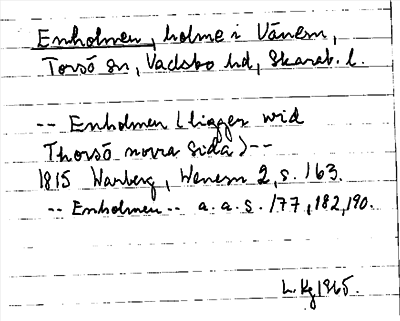 Enholmen, holme i Vänern,
Torsö sn, Vadsbo hd, Skarab. l.
-- Enholmen (ligger wid
Thorsö norra Sida) --
1815 Warberg, Wenern 2, s. 163.
-- Enholmen -- a.a.s. 177, 182, 190.
L. Kg 1965.